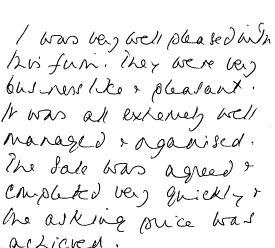 I was very well pleased with
this firm. They were very
businesslike & pleasant.
It was all extremely well
managed & organised.
The sale was agreed &
completed very quickly &
the asking price was
achieved.